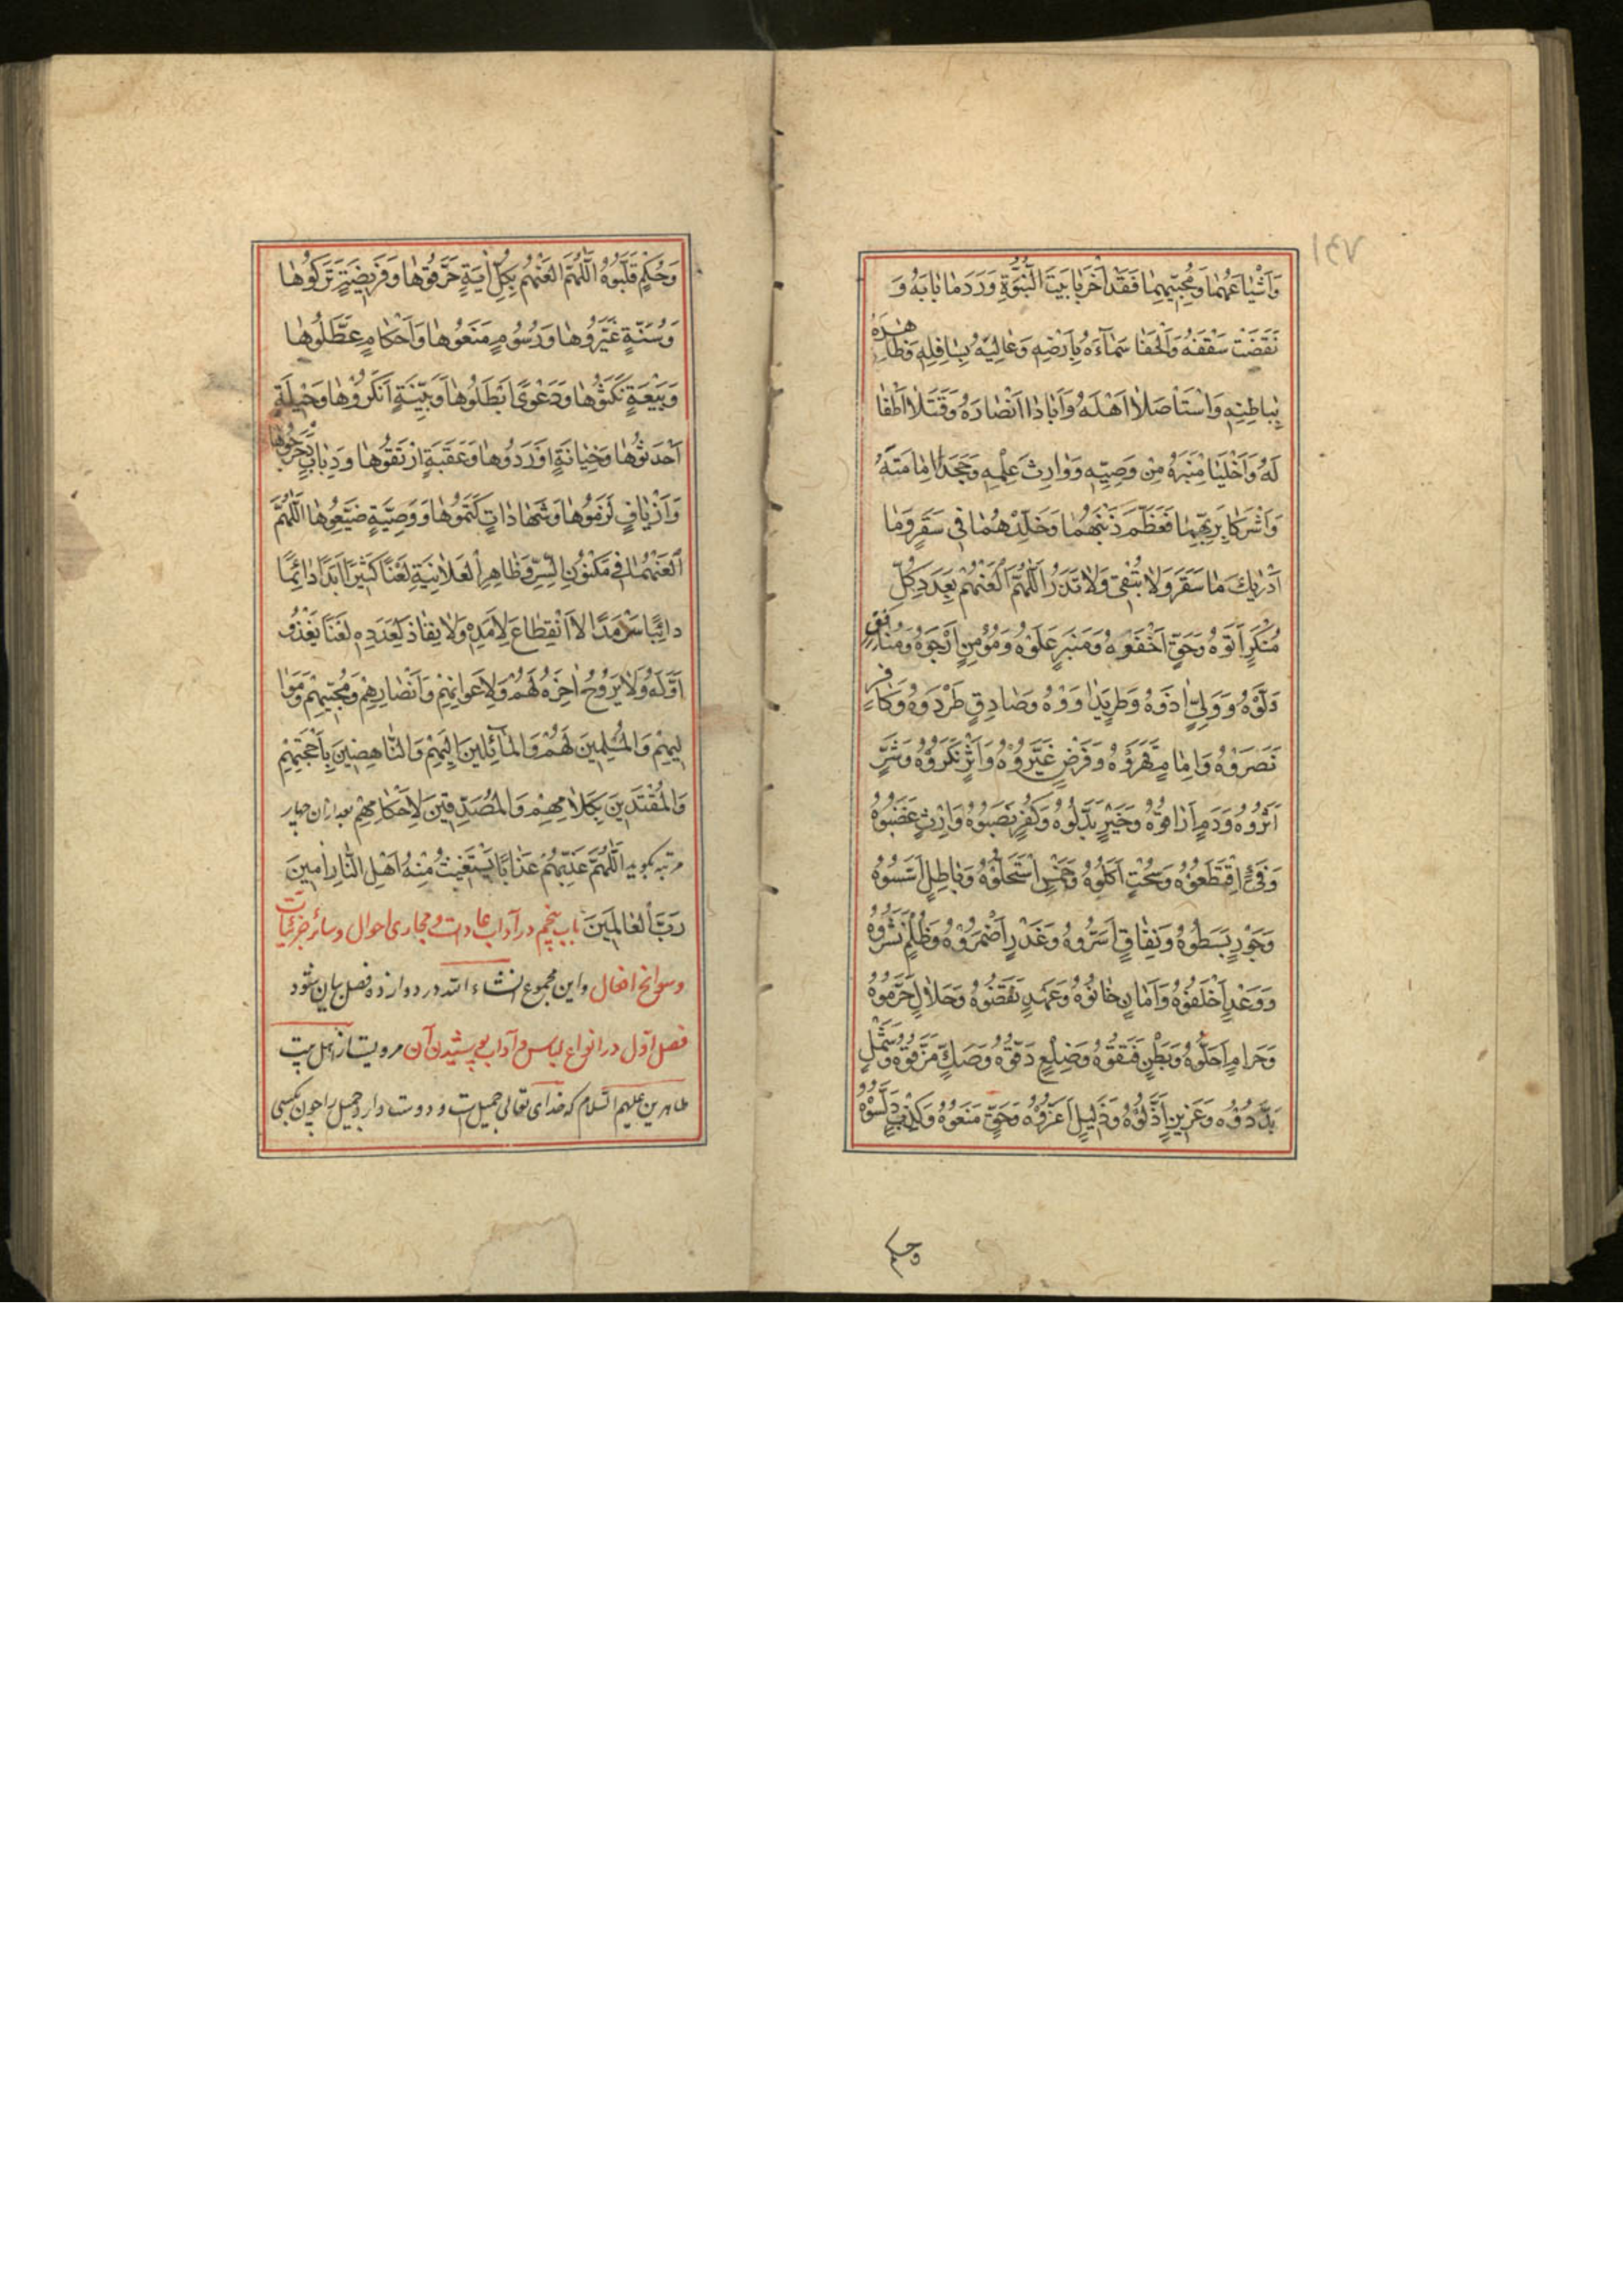 وَاَشْیٰاعَهُمٰا وَمُحِبّیهِمٰا فَقَدْ اَخْرَبٰا بَیْتَ النُّبُوَّةِ وَرَدَمٰا بٰابَهُ وَ
نَقَضٰت سَقْفَهُ وَاَلْحَقٰا سَمٰآءَهُ بِاَرْضِهِ وَعٰالِیَهُ بِسٰافِلِهِ وَظٰاهِرَهُ
بِبٰاطِنِهِ وَاسْتَأْصَلاٰ اَهْلَهُ وَاَبٰادٰا اَنْصٰارَهُ وَقَتَلاٰ اَطْفٰا
لَهُ وَاَخْلَیٰا مِنْبَرَهُ مِنْ وَصِیِّهِ وَوٰارِثَ عِلْمِهِ وَجَحَدٰا اِمٰامَتَهُ
وَاَشْرَکٰا بِرَبِّهِمٰا فَعَظِّمْ ذَنْبَهُمٰا وَخَلِّدْهُمٰا فی سَقَرٍ وَمٰا
اَدْرٰیكَ مٰا سَقَرَ وَلاٰ تُبْقی وَلاٰ تَذَرُ اَللّٰهُمَّ الْعَنْهُمْ بِعَدَدِ کُلِّ
مُنْکَرٍ اَتَوْهُ وَحَقٍّ اَخْفَوْهُ وَمِنْبَرٍ عَلَوْهُ وَمُؤْمِنٍ اَرْجَوْهُ وَمُنٰافِقٍ
وَلَّوْهُ وَوَلِیٍّ اٰذَوْهُ وَطَریدٍ اٰوَوْهُ وَصٰادِقٍ طَرَدوَهُ وَکٰافِرٍ
نَصَرَوْهُ وَاِمٰامٍ قَهَرَوْهُ وَفَرْضٍ غَیَّرُوْهُ وَاَثَرٍ نَکَرَوْهُ وَشَرٍّ
اٰثَرُوهُ وَدَمٍ اَرٰاقُوْهُ وَخَیْرٍ بَدَّلُوْهُ وَکُفْرٍ نَصَبُوْهُ وَاِرْثٍ غَصَبُوْهُ
وَفَیْءٍ اقْتَطَعُوْهُ وَسُحْتٍ اَکَلُوْهُ وَخُمْسٍ اسْتَحَلُّوْهُ وَبٰاطِلٍ اَسَّسُوْهُ
وَجَوْرٍ بَسَطُوْهُ وَنِفٰاقٍ اَسَرُّوهُ وَغَدْرٍ اَضْمَرَوْهُ وَظُلْمٍ نَشَرُوْهُ
وَوَعْدٍ اَخْلَفُوْهُ وَاَمٰانٍ خٰانُوْهُ وَعَهْدٍ نَقَضُوْهُ وَحَلاٰلٍ حَرَّمُوْهُ
وَحَرٰامٍ اَحَلُّوْهُ وَبَطْنٍ فَتَقُوْهُ وَضِلْعٍ دَقُّوْهُ وَصَكٍّ مَزَّقُوْهُ وَشَمْلٍ
بَدَّدُوْهُ وَعَزیزٍ اَذَلُّوْهُ وَذَلیلٍ اَعَزُّوْهُ وَحَقٍّ مَنَعُوْهُ وَکِذْبٍ دَلَّسُوْهُ
وحکم
وَحُکْمٍ قَلَّبُوْهُ اَللّٰهُمَّ الْعَنْهُمْ بِکُلِّ اٰیَةٍ حَرَّفُوْهٰا وَفَریضَةٍ تَرَکُوْهٰا
وَسُنَّةٍ غَیَّرُوْهٰا وَرُسُومٍ مَنَعُوْهٰا وَاَحْکٰامٍ عَطَّلُوْهٰا
وَبَیْعَةٍ نَکَثُوْهٰا وَدَعْوًی اَبْطَلُوْهٰا وَبَیِّنَةٍ اَنْکَرُوْهٰا وَحیلَةٍ
اَحْدَثُوْهٰا وَخِیٰانَةٍ اَوْرَدُوْهٰا وَعَقَبَةٍ ارْتَقَوْهٰا وَدِبٰابٍ دَحْرَجُوْهٰا
وَاَزْیٰافٍ لَزِمُوْهٰا وَشَهٰادٰاتٍ کَتَمُوْهٰا وَوَصِیَّةٍ ضَیَّعُوْهٰا اَللّٰهُمَّ
الْعَنْهُمٰا فی مَکْنُوْنِ السِّرِّ وَظٰاهِرِ الْعَلاٰنِیَةِ لَعْنًا کَثیرًا اَبَدًا دٰائِمًا
دٰائِبًا سَرْمَدًا لاٰ انْقِطٰاعَ لِاَمَدِهِ وَلاٰ نِفٰاذَ لِعَدَدِهِ لَعْنًا یَغْدُو
اَوَّلُهُ وَلاٰ یَرُوْحُ اٰخِرُهُ لَهُمْ وَلِاَعْوٰانِهِمْ وَاَنْصٰارِهِمْ وَمُحِبّیهِمْ وَمَوٰا
لیهِمْ وَالْمُسَلِّمینَ لَهُمْ وَالْمٰآئِلینَ اِلَیْهِمْ وَالنّٰاهِضینَ بِاَجْنِحَتِهِمْ
وَالْمُقْتَدینَ بِکَلاٰمِهِمْ وَالْمُصَدِّقینَ لِاَحْکٰامِهِمْ بعد ازان چهار
مرتبه بکوید اَللّٰهُمَّ عَذِّبْهُمْ عَذٰابًا یَسْتَغیثُ مِنْهُ اَهْلِ النّٰارِ اٰمینَ
رَبَّ الْعٰالَمینَ باب پنجم در آداب عادات و مجاری احوال و سائر جزئیات
و سوانح افعال و این مجموع انشاء الله در دوازده فصل بیان شود
فصل اوّل در انواع لباس و آداب پوشیدن آن مرویست از اهل بیت
طاهرین علیهم السّلام که خدای تعالی جمیل است و دوست دارد جمیل را چون بکسی